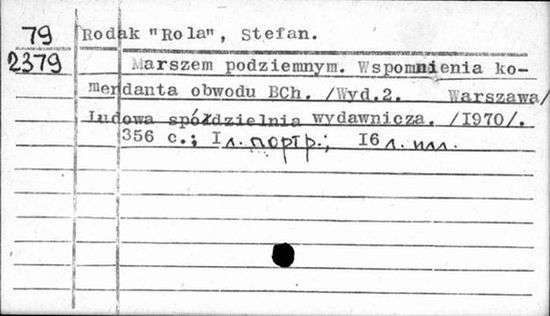 79 Rodak "Rola", Stefan.
2379 Marszem podziemnym. Wspomnienia ko-
mendanta obwodu BCh. /Wyd.2. Warszawa/
Ludowa spółdzielnia wydawnicza. /I970/.
356 с.; I л. портр.; I6 л. илл.